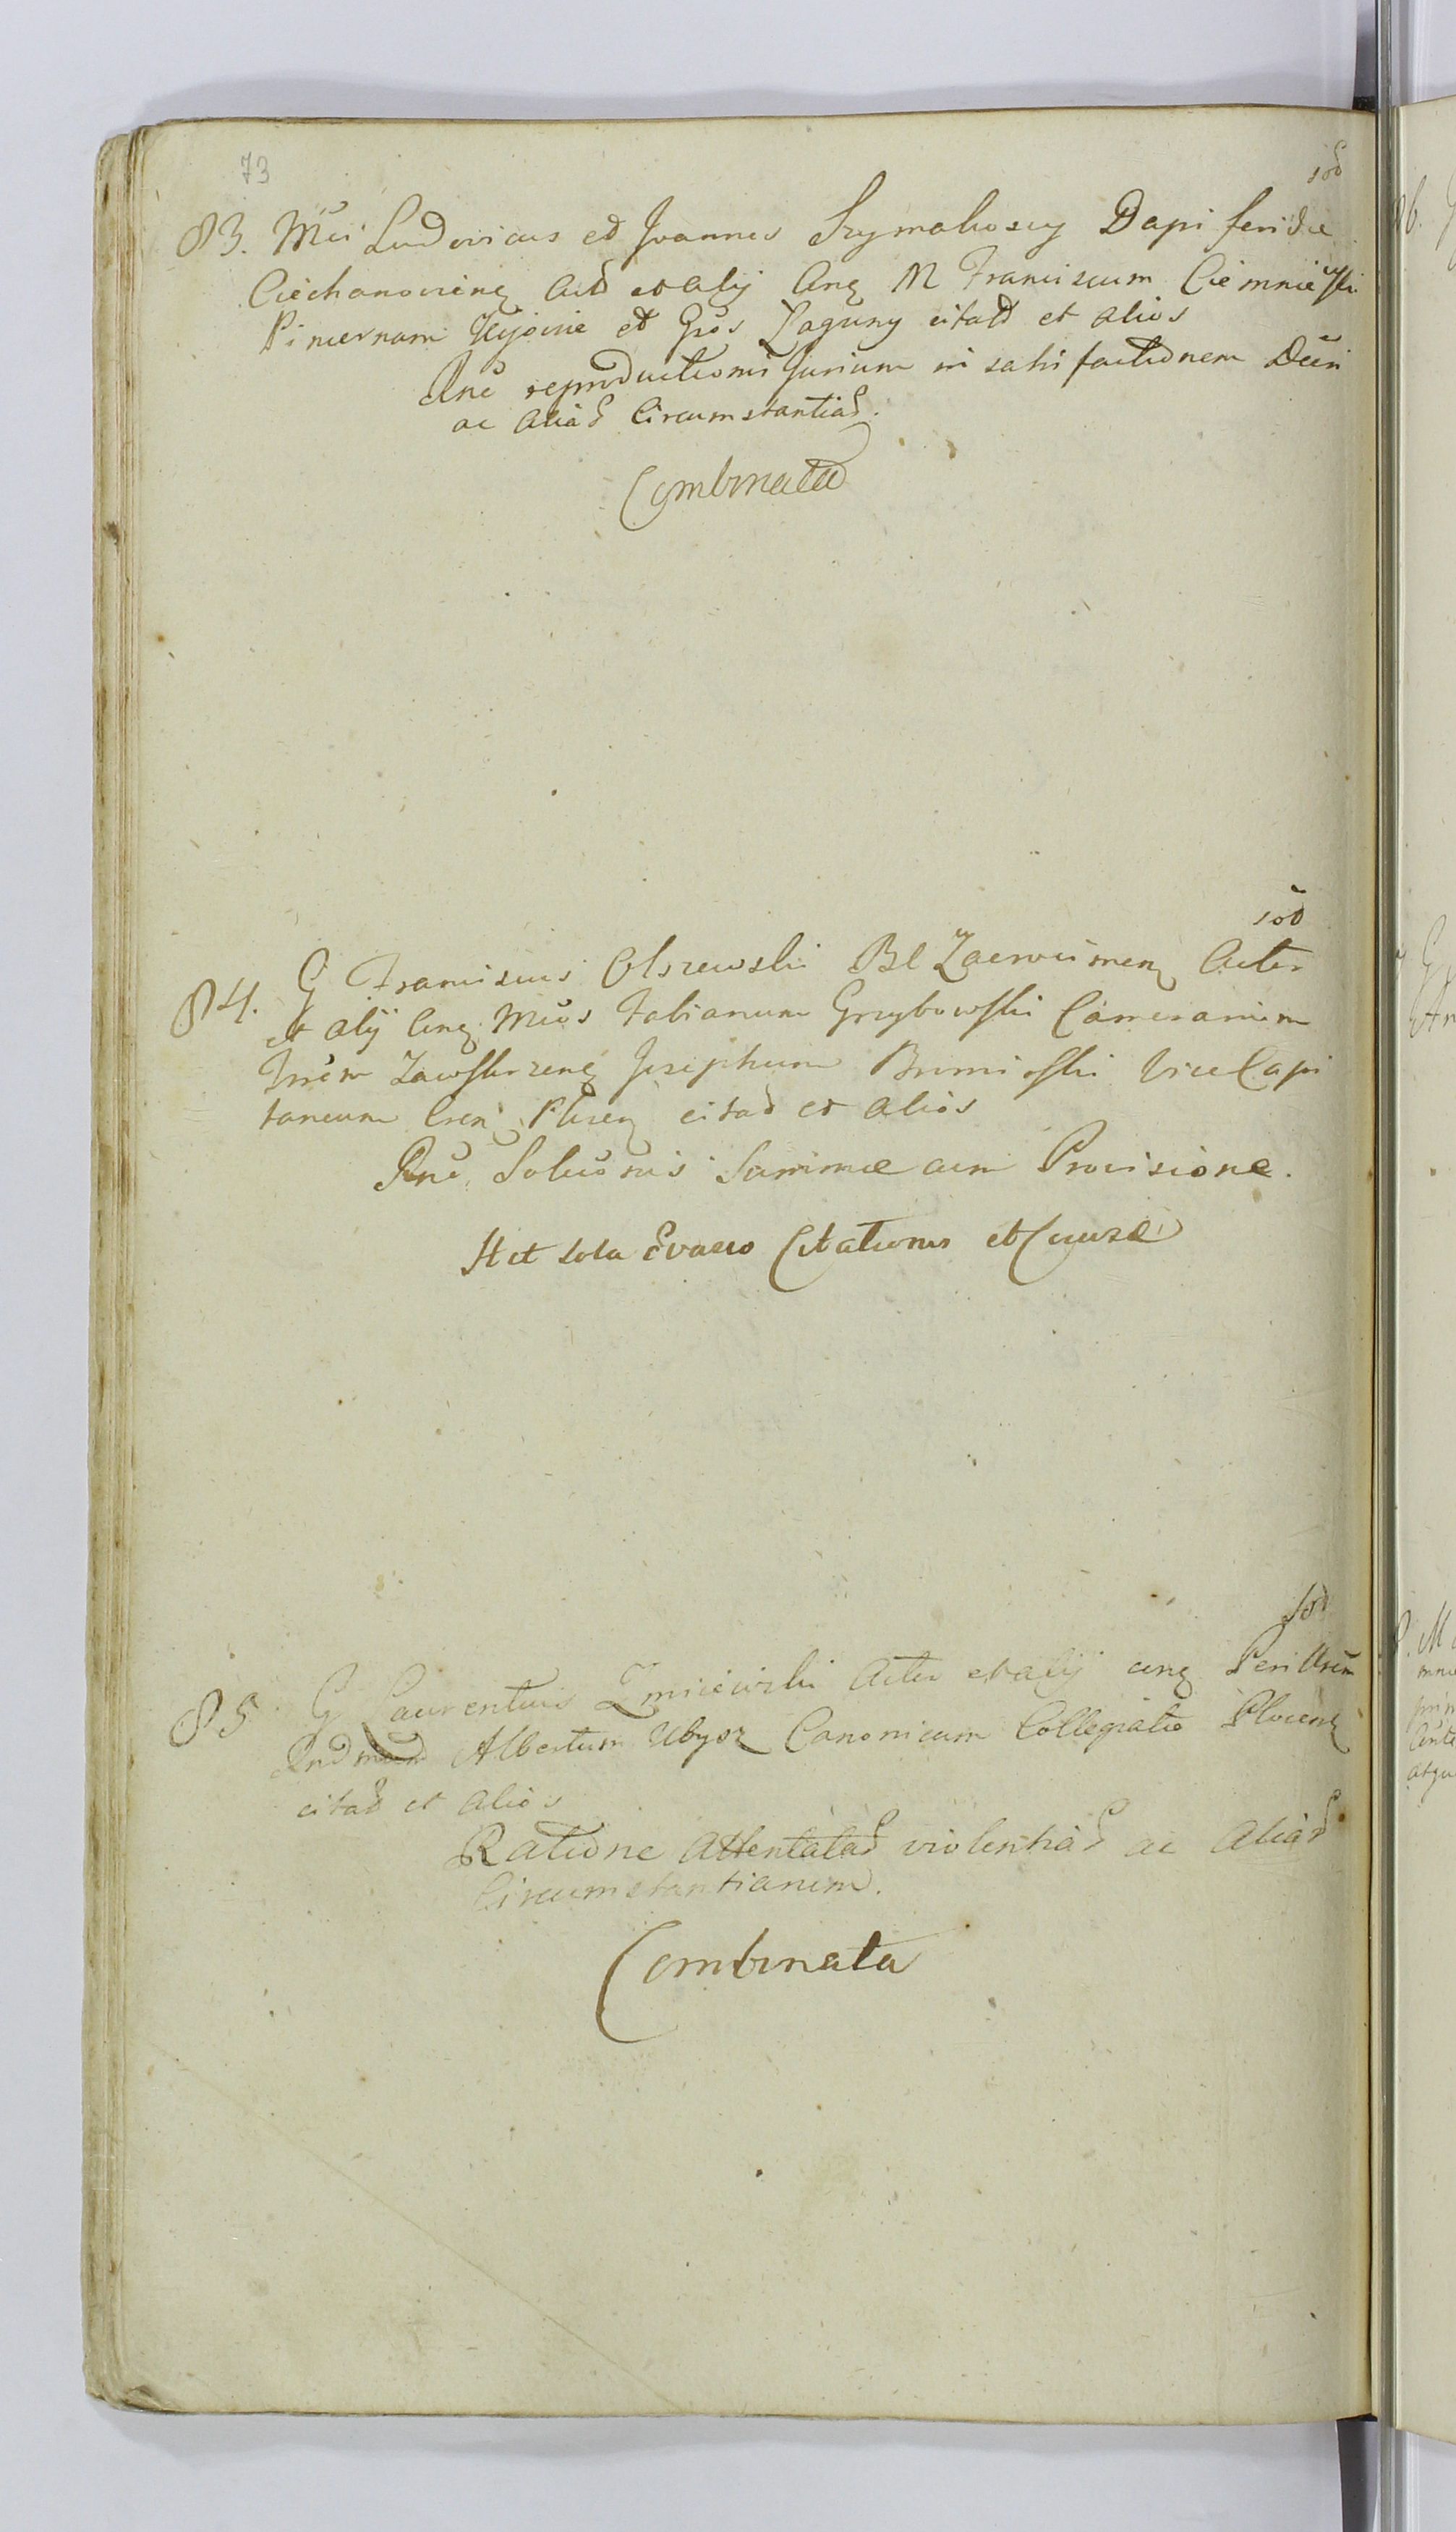 73
sod
83. Mci Ludovicus et Joannes Szymakoscy Dapiferidæ
Ciechanovieng Act et alij Cing M Franciscum Ciemniewski
Pincernam Kijoviæ et Gsos Laguny citatd et alios
Rne reproductionis Jurium in satisfactionem Decri
ac alias Circumstantias.
Combinata
sod
84. G Franciscus Olszewski Bl Zacrocimeng Actor
et alij Cing Mcos Fabianum Grzybowski Camerarium
Trrêm Zawskrzeng Josephum Ceski Vice Capi
taneum Csem Ploceng citad et alios
Rne Solucionis Summæ cum Provisione.
Stet sola Evasio Citationis et Causæ
sod
85 G Laurentius Zmiiewski Actor et alij cing Perillrem
Rndmum Albertum Ubysz Canonicum Collegiatæ Plocens
citad et alios
Ratione attentatas violentias ac alias
Circumstantiarum.
Combinata